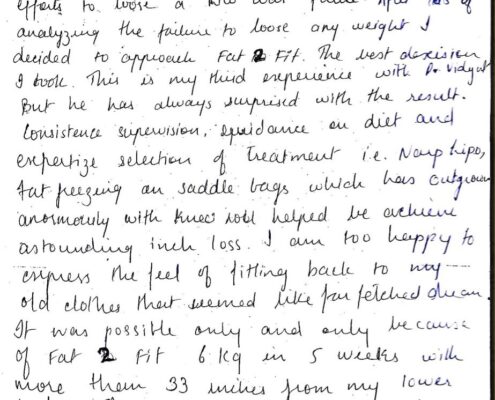 efforts to loose a
analyzing the failure to loose any weight I
decided to approach Fat 2 Fit. The best
I took. This is my third experience with Dr
But he has always surprised with the result.
Consistence supervision, guidance on diet and
expertize selection of Treatment i.e.
fat freezing on saddle bags which has outgrown
anormously with knee helped be achieve
astounding inch loss. I am too happy to
express the feel of fitting back to my
old clothes that seemed like far fetched dream.
It was possible only and only because
of Fat 2 Fit 6 kg in 5 weeks with
more them 33 inches from my lower